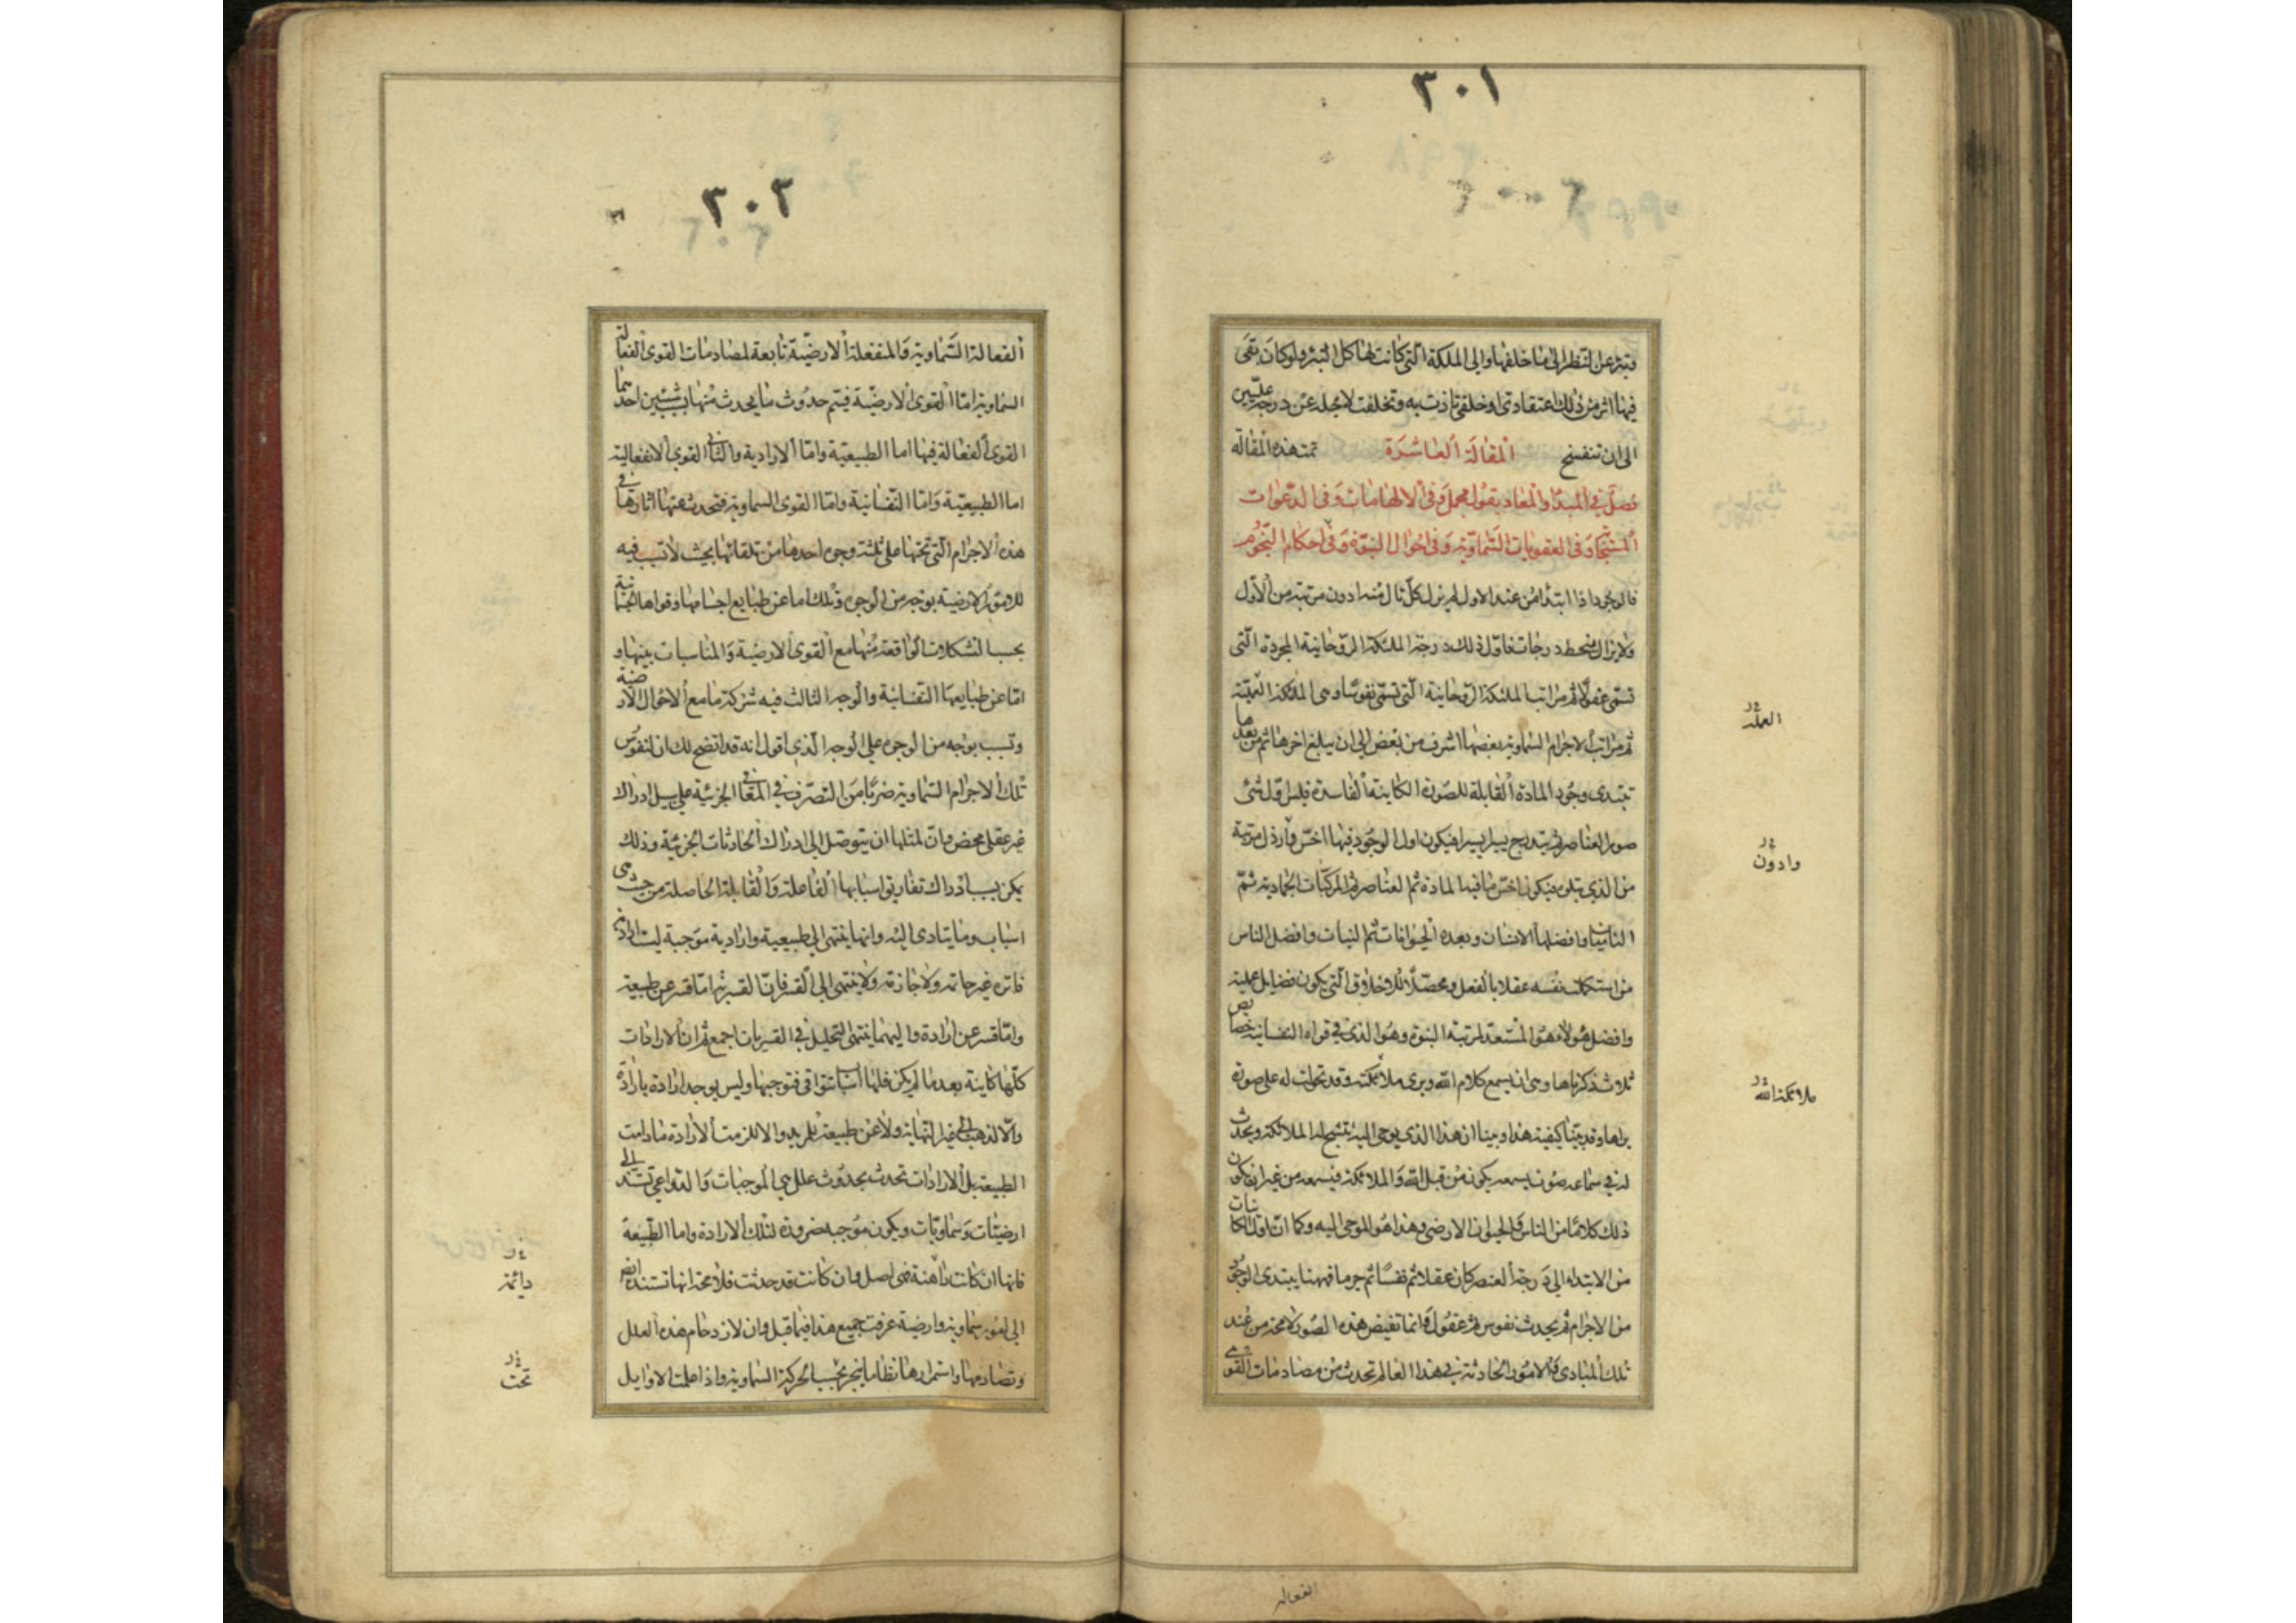 ٣٠١
وتبرء عن النظر الى ما خلفها والى الملكة التى كانت لها كل التبرء ولو كان بقى
فيها اثر من ذلك اعتقادى او خلقى تاذت به وتخلفت لاجله عن درجة عليين
الى ان تنفسخ تمت هذه المقالة المقالة العاشرة
فصل فى المبدا والمعاد بقول مجمل وفى الالهامات وفى الدعوات
المستجابة وفى العقوبات السماوية وفى احوال النبوة وفى احكام النجوم
فالوجود اذا ابتدا من عند الاول لم يزل كل تال منه ادون مرتبة من الاول
ولا يزال ينحط درجات فاول ذلك درجة الملئكة الروحانية المجردة التى
تسمى عقولا ثم مراتب الملئكة الروحانية التى تسمى نفوسا وهى الملئكة العملية
ثم مراتب الاجرام السماوية بعضها اشرف من بعض الى ان يبلغ اخرها ثم من بعدها
تبتدى وجود المادة القابلة للصورة الكاينة الفاسدة فيلبس اول شئ
صور العناصر ثم يتدرج يسيرا يسيرا فيكون اول الوجود فيها اخس وارذل مرتبة
من الذى يتلوه فيكون اخس ما فيه المادة ثم العناصر ثم المركبات الجمادية ثم
الناميات وافضلها الانسان وبعده الحيوانات ثم النبات وافضل الناس
من استكملت نفسه عقلا بالفعل ومحصلا للاخلاق التى يكون فضايل عملية
وافضل هؤلاء هو المستعد لمرتبة النبوة وهو الذى فى قواه النفسانية خصايص
ثلاث ذكرناها وهى ان يسمع كلام الله ويرى ملائكته وقد تحولت له على صورة
يراها وقد بينا كيفية هذا وبينا ان هذا الذى يوحى اليه تتشبح له الملائكة ويحدث
له فى سماعه صوت يسمعه يكون من قبل الله والملائكة فيسمعه من غير ان يكون
ذلك كلاما من الناس والحيوان الارضى وهذا هو الموحى اليه وكما ان اول الكاينات
من الابتداء الى درجة العنصر كان عقلا ثم نفسا ثم جرما فههنا يبتدى الوجود
من الاجرام ثم يحدث نفوس ثم عقول وانما تفيض هذه الصور لا محة من عند
تلك المبادى والامور الحادثة فى هذا العالم تحدث من مصادمات القوى
العملية
وادون
ملائكة الله
الفعاله
٣٠٢
الفعالة السماوية والمنفعلة الارضية تابعة لمصادمات القوى الفعالة
السماوية اما القوى الارضية فيتم حدوث ما يحدث منها بسبب شيئين احدهما
القوى الفعالة فيها اما الطبيعية واما الارادية والثانى القوى الانفعالية
اما الطبيعية واما النفسانية واما القوى السماوية فتحدث عنها اثارها فى
هذه الاجرام التى تحتها على ثلثة وجوه احدها من تلقائها بحيث لا تسبب فيه
للامور الارضية بوجه من الوجوه وتلك اما عن طبايع اجسامها وقواها الجسمانية
بحسب التشكلات الواقعة منها مع القوى الارضية والمناسبات بينها و
اما عن طبايعها النفسانية والوجه الثالث فيه شركة ما مع الاحوال الارضية
وتسبب بوجه من الوجوه على الوجه الذى اقول انه قد اتضح لك ان لنفوس
تلك الاجرام السماوية ضربا من التصرف فى المعانى الجزئية على سبيل ادراك
غير عقلى محض وان لمثلها ان يتوصل الى ادراك الحادثات الجزئية وذلك
يمكن بسبب ادراك تفاريق اسبابها الفاعلة والقابلة الحاصلة من حيث هى
اسباب وما يتادى اليه وانها ينتهى الى طبيعية وارادية موجبة ليست ارادية
فاترة غير حاتمة ولا جازمة ولا ينتهى الى القسر فان القسرية اما قسر عن طبيعة
واما قسر عن ارادة واليهما ينتهى التحليل فى القسريات اجمع ثم ان الارادات
كلها كاينة بعد ما لم يكن فلها اسباب تتوافى فتوجبها وليس يوجد ارادة بارادة
والا لذهب الى غير النهاية ولا عن طبيعة للمريد والا للزمت الارادة مادامت
الطبيعة بل الارادات تحدث بحدوث علل هى الموجبات والدواعى تستند الى
ارضيات وسماويات ويكون موجبه ضرورة لتلك الارادة واما الطبيعة
فانها ان كانت راهنة فهى اصل وان كانت قد حدثت فلا محة انها تستند ايضا
الى امور سماوية وارضية عرفت جميع هذا فيما قبل وان لازدحام هذه العلل
وتصادمها واستمرارها نظاما ينجر تحسب الحركة السماوية واذا علمت الاوايل
دائمة
تحت